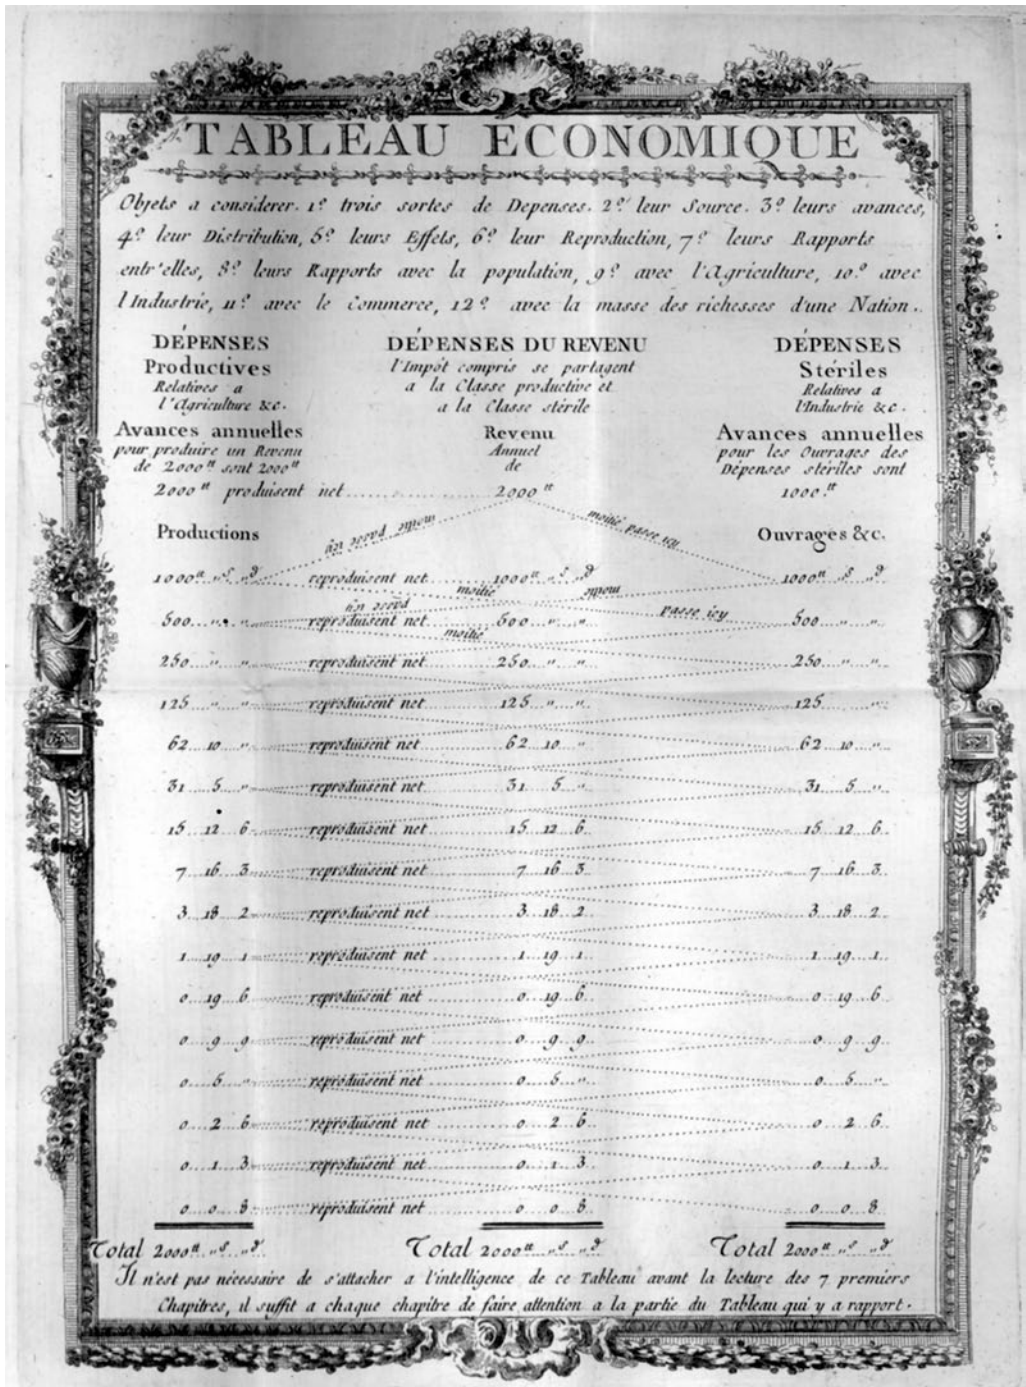 TABLEAU ECONOMIQUE
Objets a considerer. 1.º trois sortes de Depenses. 2.º leur Source. 3.º leurs avances,
4.º leur Distribution, 5.º leurs Effets, 6.º leur Reproduction, 7.º leurs Rapports
entr'elles, 8.º leurs Rapports avec la population, 9.º avec l'Agriculture, 10.º avec
l'Industrie, 11.º avec le Commerce, 12.º avec la masse des richesses d'une Nation.
DÉPENSES DÉPENSES DU REVENU DÉPENSES
Productives l'Impôt compris se partagent Stériles
Relatives a a la Classe productive et Relatives a
l'Agriculture &c. a la Classe stérile l'Industrie &c.
Avances annuelles Revenu Avances annuelles
pour produire un Revenu Annuel pour les Ouvrages des
de 2000.tt sont 2000tt de Dépenses stériles sont
2000tt produisent net 2000tt 1000.tt
moitié passe icy moitié passe icy
Productions Ouvrages &c.
1000tt „s „d reproduisent net 1000tt „s „d 1000tt „s „d
moitié moitié
passe icy passe icy
500 „ „ reproduisent net 500 „ „ 500 „ „
moitié
250 „ „ reproduisent net 250 „ „ 250 „ „
125 „ „ reproduisent net 125 „ „ 125 „ „
62 10 „ reproduisent net 62 10 „ 62 10 „
31 5 „ reproduisent net 31 5 „ 31 5 „
15 12 6 reproduisent net 15 12 6 15 12 6
7 16 3 reproduisent net 7 16 3 7 16 3
3 18 2 reproduisent net 3 18 2 3 18 2
1 19 1 reproduisent net 1 19 1 1 19 1
0 19 6 reproduisent net 0 19 6 0 19 6
0 9 9 reproduisent net 0 9 9 0 9 9
0 5 „ reproduisent net 0 5 „ 0 5 „
0 2 6 reproduisent net 0 2 6 0 2 6
0 1 3 reproduisent net 0 1 3 0 1 3
0 0 8 reproduisent net 0 0 8 0 0 8
Total 2000tt „s „d Total 2000tt „s „d Total 2000tt „s „d
Il n'est pas nécessaire de s'attacher a l'intelligence de ce Tableau avant la lecture des 7 premiers
Chapitres, il suffit a chaque chapitre de faire attention a la partie du Tableau qui y a rapport.